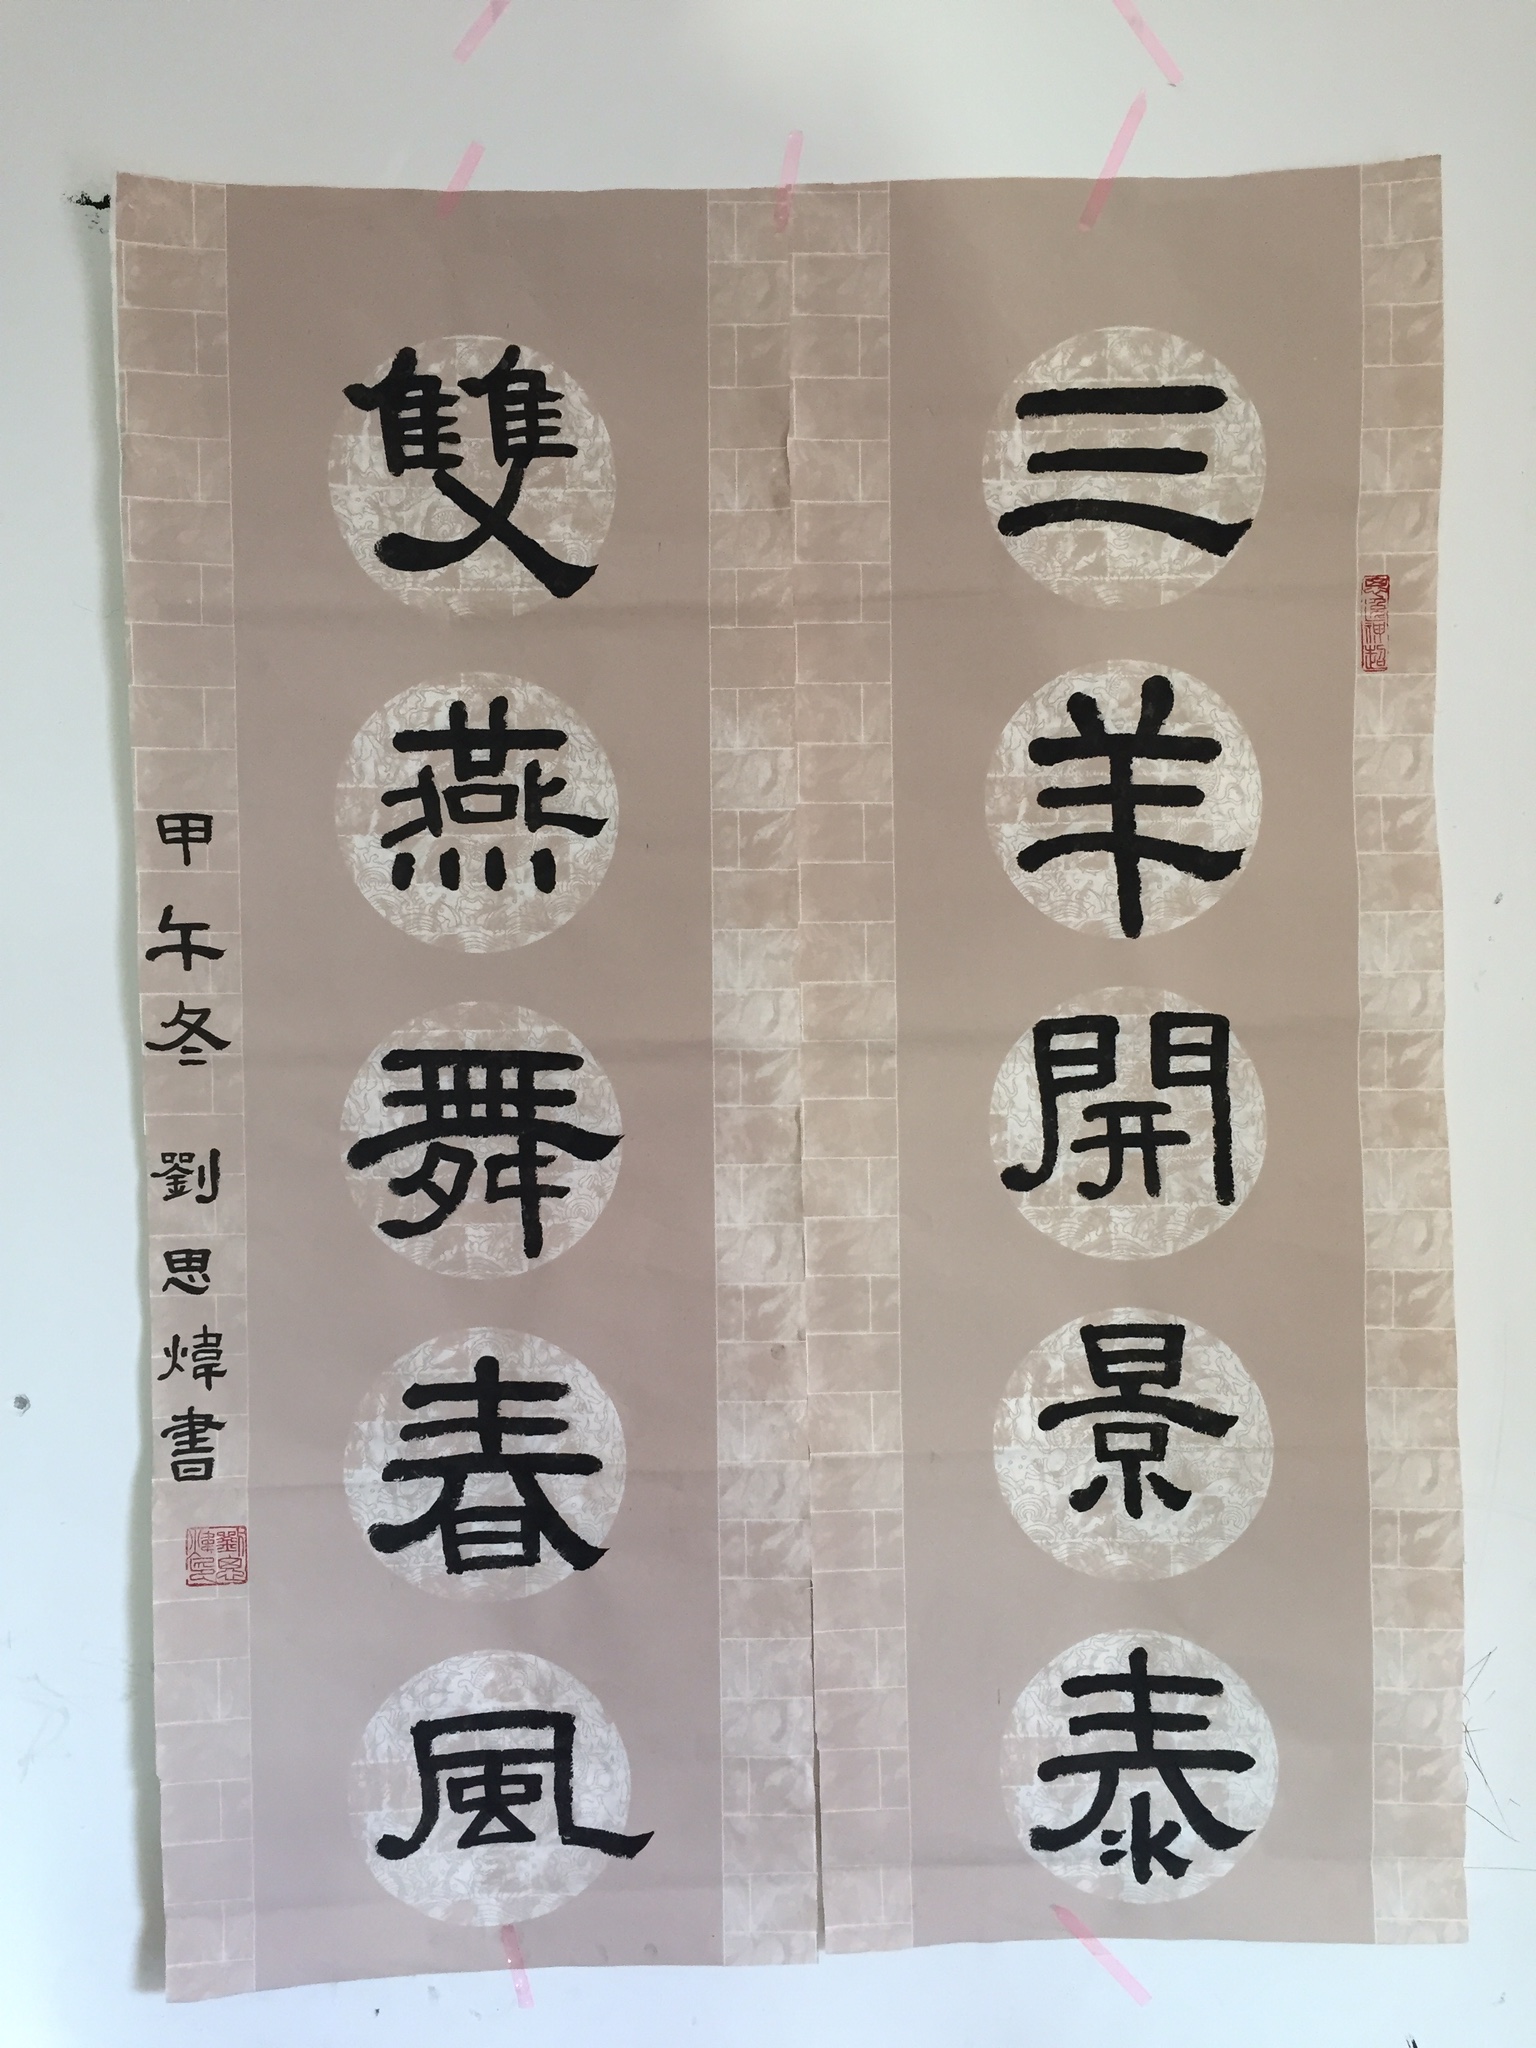 三羊開景泰
雙燕舞春風
甲午冬 劉思煒書
劉思煒印